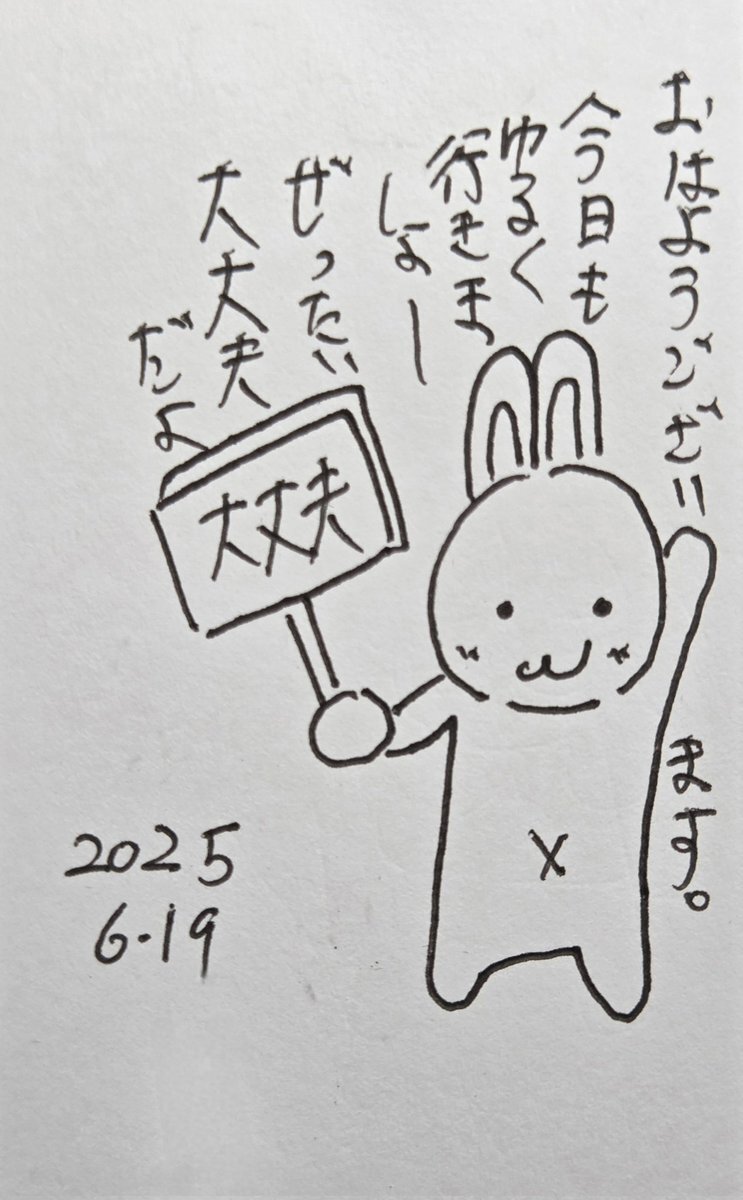 おはようございます。
今日も
ゆるく
行きま
しょー
ぜったい
大丈夫
だよ
大丈夫
2025
6.19